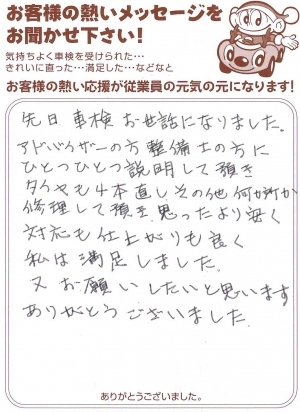 お客様の熱いメッセージを
お聞かせ下さい!
気持ちよく車検を受けられた…
きれいに直った…満足した…などなど
お客様の熱い応援が従業員の元気の元になります!
先日車検お世話になりました。
アドバイザーの方整備士の方に
ひとつひとつ説明して頂き
タイヤも4本直しその他何か所か
修理して頂き思ったより安く
対応も仕上がりも良く
私は満足しました。
又お願いしたいと思います
ありがとうございました。
ありがとうございました。